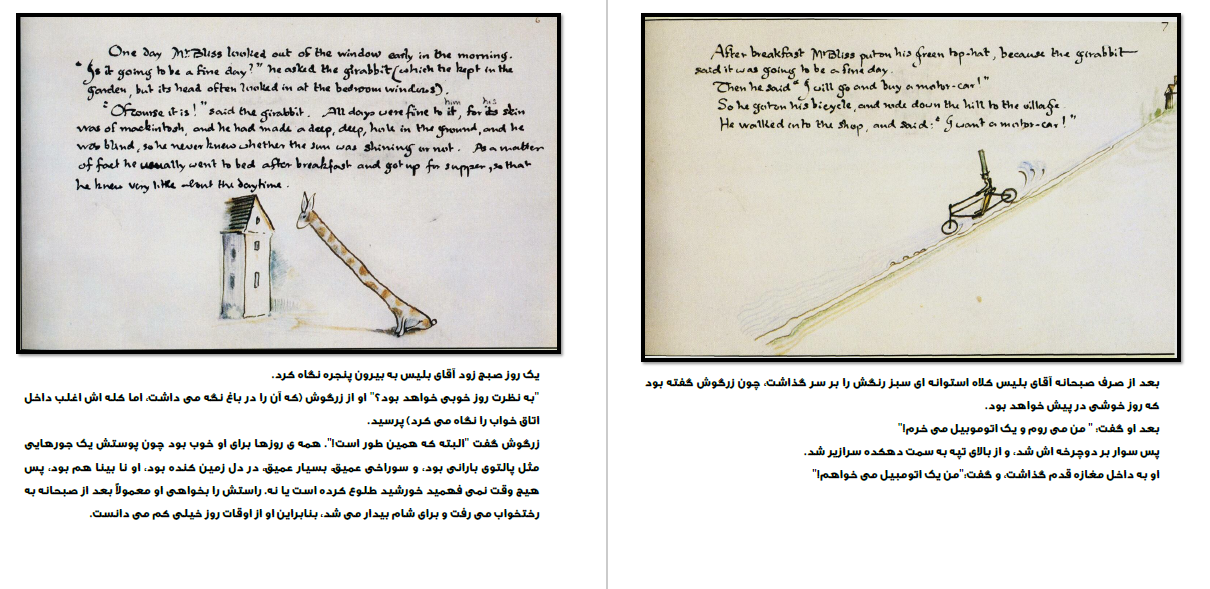 6
One day Mr. Bliss looked out of the window early in the morning.
"Is it going to be a fine day?" he asked the girabbit (which he kept in the
garden, but its head often looked in at the bedroom windows).
"Of course it is!" said the girabbit. All days were fine to it him, for its his skin
was of mackintosh, and he had made a deep, deep, hole in the ground, and he
was blind, so he never knew whether the sun was shining or not. As a matter
of fact he usually went to bed after breakfast and got up for supper, so that
he knew very little about the daytime.
یک روز صبح زود آقای بلیس به بیرون پنجره نگاه کرد.
"به نظرت روز خوبی خواهد بود؟" او از زرگوش (که آن را در باغ نگه می داشت، اما کله اش اغلب داخل
اتاق خواب را نگاه می کرد) پرسید.
زرگوش گفت "البته که همین طور است!". همه ی روزها برای او خوب بود چون پوستش یک جورهایی
مثل پالتوی بارانی بود، و سوراخی عمیق، بسیار عمیق، در دل زمین کنده بود، او نا بینا هم بود، پس
هیچ وقت نمی فهمید خورشید طلوع کرده است یا نه. راستش را بخواهی او معمولاً بعد از صبحانه به
رختخواب می رفت و برای شام بیدار می شد، بنابراین او از اوقات روز خیلی کم می دانست.
7
After breakfast Mr Bliss put on his green top-hat, because the girabbit
said it was going to be a fine day.
Then he said "I will go and buy a motor-car!"
So he got on his bicycle, and rode down the hill to the village.
He walked into the shop, and said: "I want a motor-car!"
بعد از صرف صبحانه آقای بلیس کلاه استوانه ای سبز رنگش را بر سر گذاشت، چون زرگوش گفته بود
که روز خوشی در پیش خواهد بود.
بعد او گفت: " من می روم و یک اتوموبیل می خرم!"
پس سوار بر دوچرخه اش شد، و از بالای تپه به سمت دهکده سرازیر شد.
او به داخل مغازه قدم گذاشت، و گفت:"من یک اتومبیل می خواهم!"